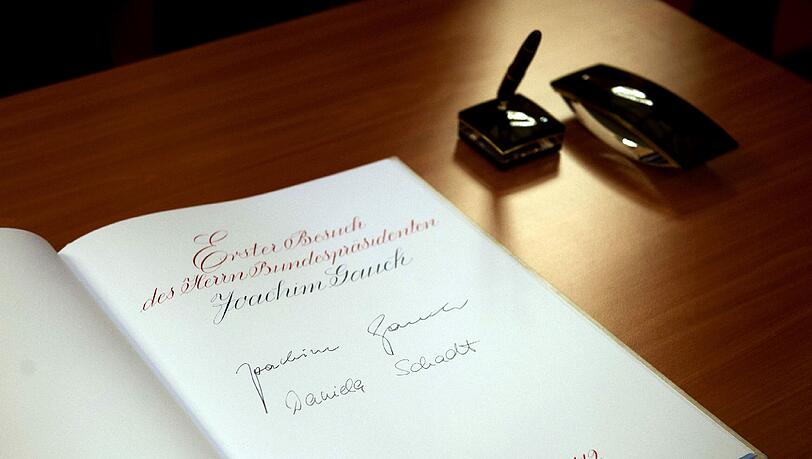 Erster Besuch
des Herrn Bundespräsidenten
Joachim Gauck
Joachim Gauck
Daniela Schadt